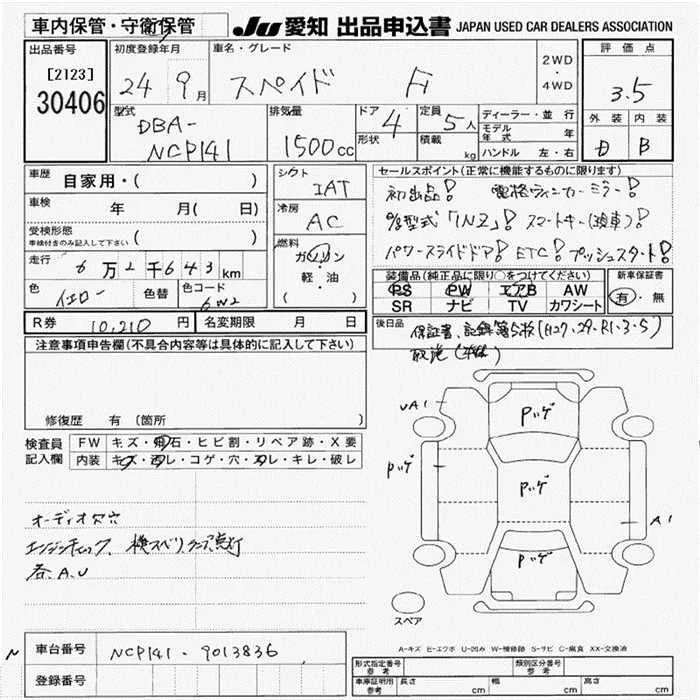 車内保管・守衛保管
JU 愛知 出品申込書 JAPAN USED CAR DEALERS ASSOCIATION
出品番号 初度登録年月 車名・グレード 評価点
[2123]
30406
24 9月 スペイド F 2WD・4WD 3.5
型式 排気量 ドア 定員 ディーラー・並行 外装 内装
DBA-
NCP141 1500cc 4 5人 モデル年式 年 D B
形状 積載 kg ハンドル 左・右
車歴 自家用・( ) シフト IAT
セールスポイント(正常に機能するものに限ります)
車検 年 月( 日) 冷房 AC
初出品! 電格ウィンカーミラー!
受検形態 ( )
車検付きのみ記入して下さい
型式「1NZ」! スマートキー(
走行 6万2千643km 燃料 ガソリン・軽・油 ( )
パワースライドドア! ETC! プッシュスタート!
色 イエロー 色替 色コード 6W2
装備品(純正品に限り○をつけてください) 新車保証書
PS PW エアB AW 有・無
SR ナビ TV カワシート
R券 10,210円 名変期限 月 日
後日品 保証書、記録簿5枚(H27.29.R1.3.5)
取説(
注意事項申告欄(不具合内容等は具体的に記入して下さい)
修復歴 有 (箇所
検査員記入欄 FW キズ・飛石・ヒビ割・リペア跡・X要
内装 キズ・汚レ・コゲ・穴・スレ・キレ・破レ
UA1 Pハゲ
Pハゲ Pハゲ A1
Pハゲ
オーディオ欠穴
エンジンチェック、横スベリ、ランプ点灯
各.A.U
スペア
A-キズ E-エクボ U-凹み W-補修跡 S-サビ C-腐食 XX-交換済
N 車台番号 NCP141-9013836
登録番号
形式指定番号 参考 類別区分番号 参考
車庫証明用 参考 長さ cm 幅 cm 高さ cm